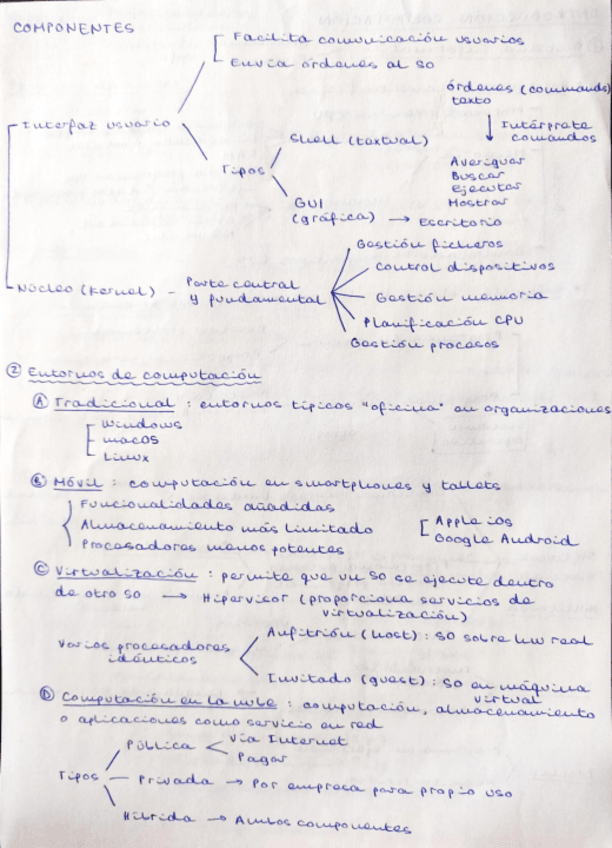 COMPONENTES
Facilita comunicación usuarios
Envía órdenes al SO
Interfaz usuario
Tipos
Shell (textual)
GUI
(gráfica) → Escritorio
órdenes (commands)
texto
Intérprete
comandos
Averiguar
Buscar
Ejecutar
Mostrar
Núcleo (kernel) - Parte central
y fundamental
Gestión ficheros
Control dispositivos
Gestión memoria
Planificación CPU
Gestión procesos
② Entornos de computación
Ⓐ Tradicional : entornos típicos "oficina" en organizaciones
Windows
macOS
Linux
Ⓑ Móvil : computación en smartphones y tablets
Funcionalidades añadidas
Almacenamiento más limitado
Procesadores menos potentes
Apple ios
Google Android
Ⓒ Virtualización : permite que un SO se ejecute dentro
de otro SO → Hipervisor (proporciona servicios de
virtualización)
Varios procesadores
idénticos
Anfitrión (host) : SO sobre hw real
Invitado (guest) : SO en máquina
virtual
Ⓓ Computación en la nube : computación, almacenamiento
o aplicaciones como servicio en red
Tipos
Pública
Vía Internet
Pagar
Privada → Por empresa para propio uso
Híbrida → Ambos componentes